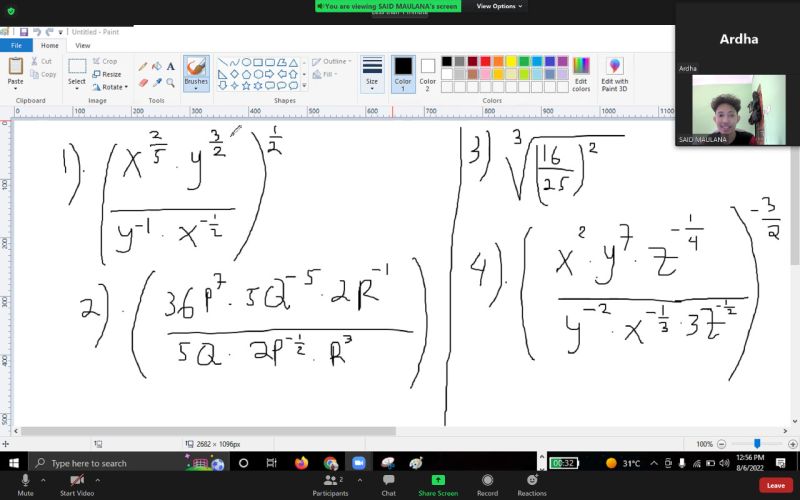 You are viewing SAID MAULANA's screen
View Options
Untitled - Paint
File
Home
View
Paste
Cut
Copy
Clipboard
Select
Crop
Resize
Rotate
Image
Tools
Brushes
Shapes
Outline
Fill
Size
Color 1
Color 2
Colors
Edit colors
Edit with Paint 3D
Ardha
Ardha
SAID MAULANA
0 100 200 300 400 500 600 700 800 900 1000 1100
0
100
200
300
400
500
1). (x^(2/5) · y^(3/2) / y^-1 · x^(-1/2))^(1/2)
2). (36P^7 · 5Q^-5 · 2R^-1 / 5Q · 2P^(-1/2) · R^3)
3) ³√(16/25)^2
4). (x^2 · y^7 · z^(-1/4) / y^-2 · x^(-1/3) · 3z^(-1/2))^(-3/2)
2682 × 1096px
100%
Type here to search
00:32
31°C
12:56 PM
8/6/2022
Mute
Start Video
Participants
2
Chat
Share Screen
Record
Reactions
Leave